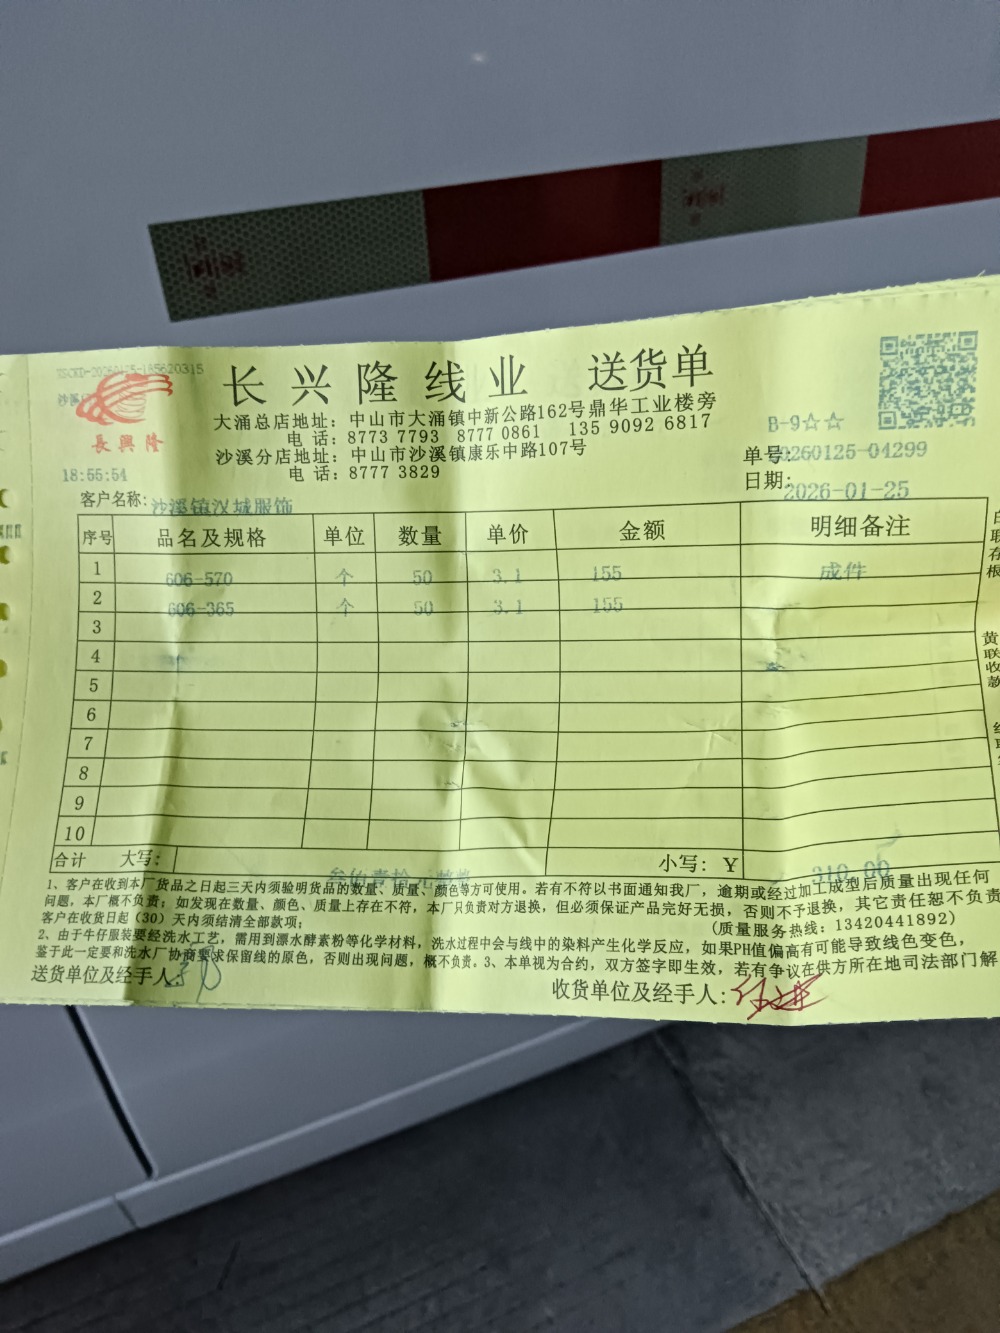 XSCKD-20260125-185620315
长兴隆线业 送货单
大涌总店地址：中山市大涌镇中新公路162号鼎华工业楼旁
电 话：8773 7793 8777 0861 135 9092 6817
沙溪分店地址：中山市沙溪镇康乐中路107号
电 话：8777 3829
長興隆
B-9☆☆
单号:20260125-04299
日期:2026-01-25
18:55:54
客户名称:沙溪镇汉城服饰
序号 品名及规格 单位 数量 单价 金额 明细备注
1 606-570 个 50 3.1 155 成件
2 606-365 个 50 3.1 155
3
4
5
6
7
8
9
10
合计 大写: 叁佰壹拾元 小写: ¥ 310.00
1、客户在收到本厂货品之日起三天内须验明货品的数量、质量、颜色等方可使用。若有不符以书面通知我厂，逾期或经过加工成型后质量出现任何
问题，本厂概不负责；如发现在数量、颜色、质量上存在不符，本厂只负责对方退换，但必须保证产品完好无损，否则不予退换，其它责任恕不负责
客户在收货日起（30）天内须结清全部款项； (质量服务热线：13420441892)
2、由于牛仔服装要经洗水工艺，需用到漂水酵素粉等化学材料，洗水过程中会与线中的染料产生化学反应，如果PH值偏高有可能导致线色变色，
鉴于此一定要和洗水厂协商要求保留线的原色，否则出现问题，概不负责。3、本单视为合约，双方签字即生效，若有争议在供方所在地司法部门解
送货单位及经手人:
收货单位及经手人:
黄联收款